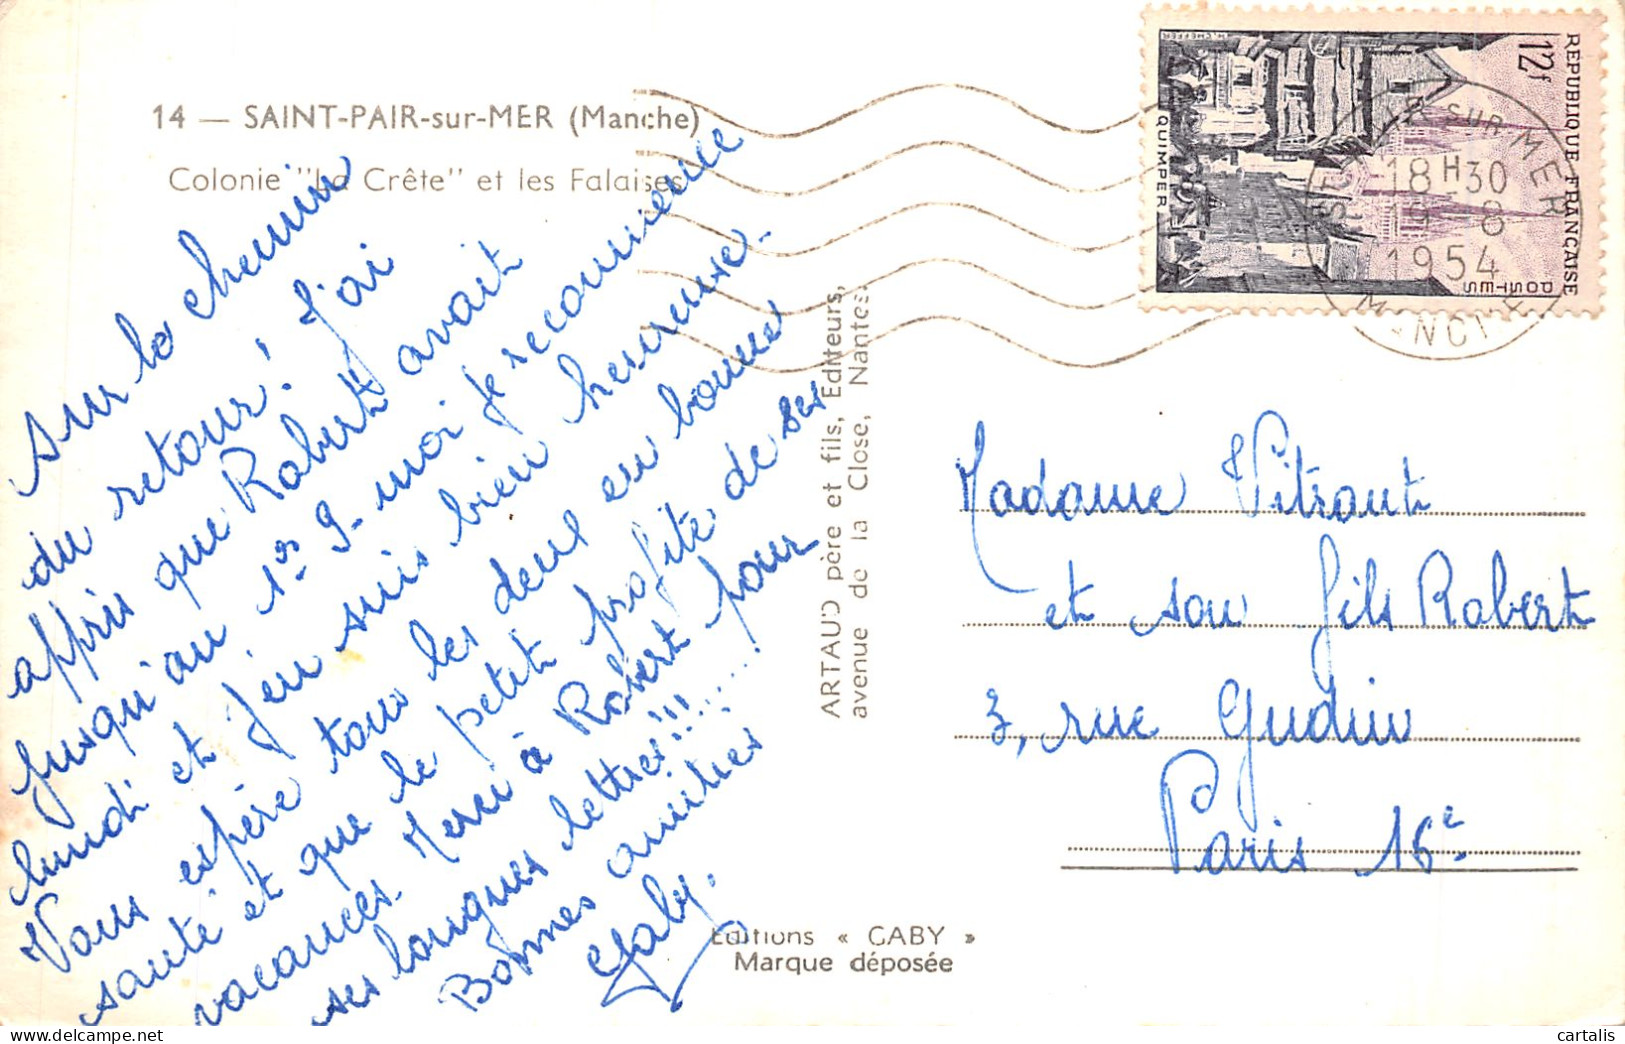 14 — SAINT-PAIR-sur-MER (Manche)
Colonie "La Crête" et les Falaises
Sur le chemin
du retour! J'ai
appris que Robert avait
jusqu'au 1er 9- moi je recommence
lundi et j'en suis bien heureuse.
Vous espère tous les deux en bonne
santé et que le petit profite de ses
vacances. Merci à Robert pour
ses longues lettres!!!......
Bonnes amitiés
Gaby.
ARTAUD père et fils, Éditeurs,
avenue de la Close, Nantes.
Editions « GABY »
Marque déposée
REPUBLIQUE FRANÇAISE
POSTES
12f
QUIMPER
H. CHEFFER
SUR MER
18H30
8
1954
MANCHE
Madame Vitrant
et son fils Robert
3, rue Gudin
Paris 16e
cartalis